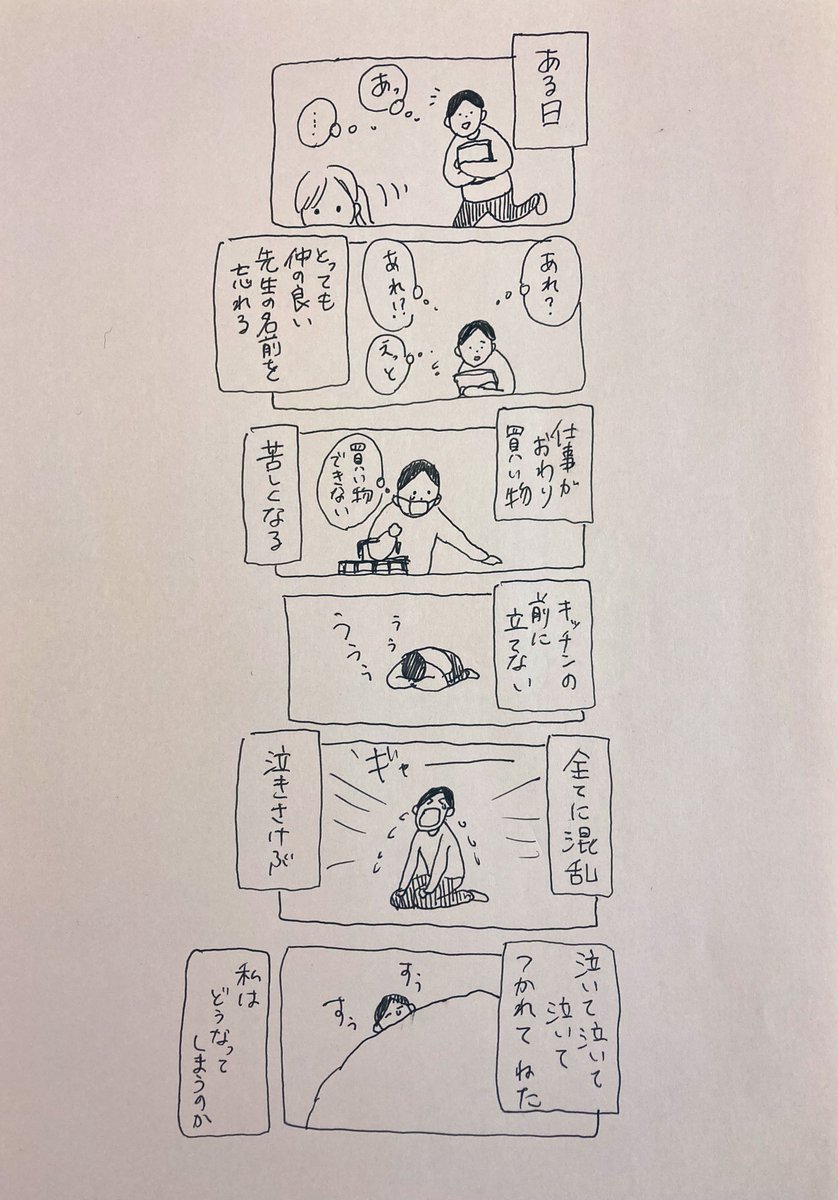 ある日
あっ
…
あれ?
あれ!?
えっと
とっても
仲の良い
先生の名前を
忘れる
仕事が
おわり
買い物
買い物
できない
苦しくなる
キッチンの
前に
立てない
うぅ
うぅぅ
全てに混乱
ギャー
泣きさけぶ
泣いて泣いて
泣いて
つかれてねた
すぅ
すぅ
私は
どうなって
しまうのか